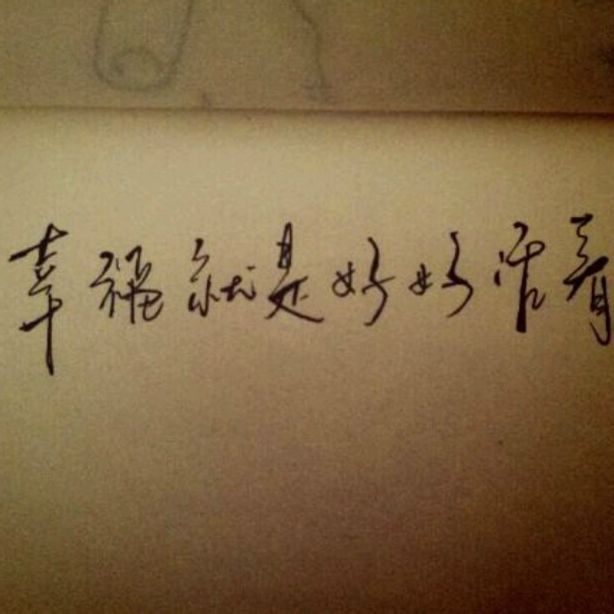 幸福就是好好活着